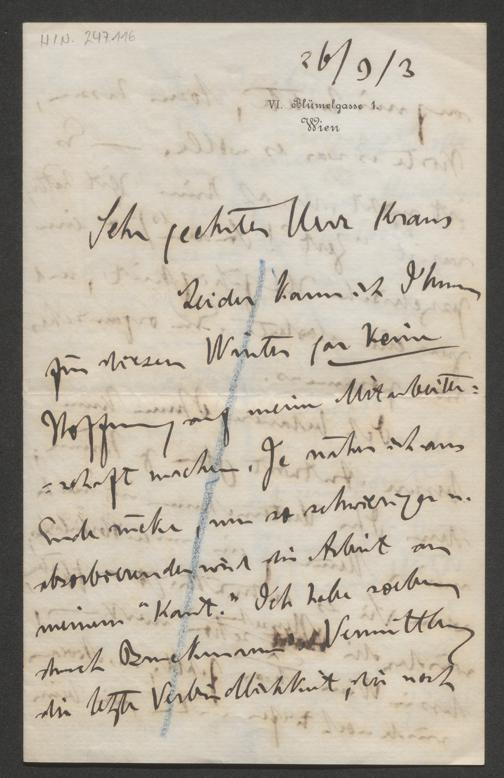 HIN. 247.116
26/9/3
VI. Blümelgasse 1.
Wien
Sehr geehrter Herr Kraus
Leider kann ich Ihnen
für diesen Winter gar keine
Hoffnung auf meine Mitarbeiter=
=schaft machen. Je näher ich ans
Ende rücke, um so schwieriger u.
absorbierender wird die Arbeit an
meinem "Kant." Ich habe soeben
durch Bruckmanns Vermittlung
die letzte Verbindlichkeit, die noch